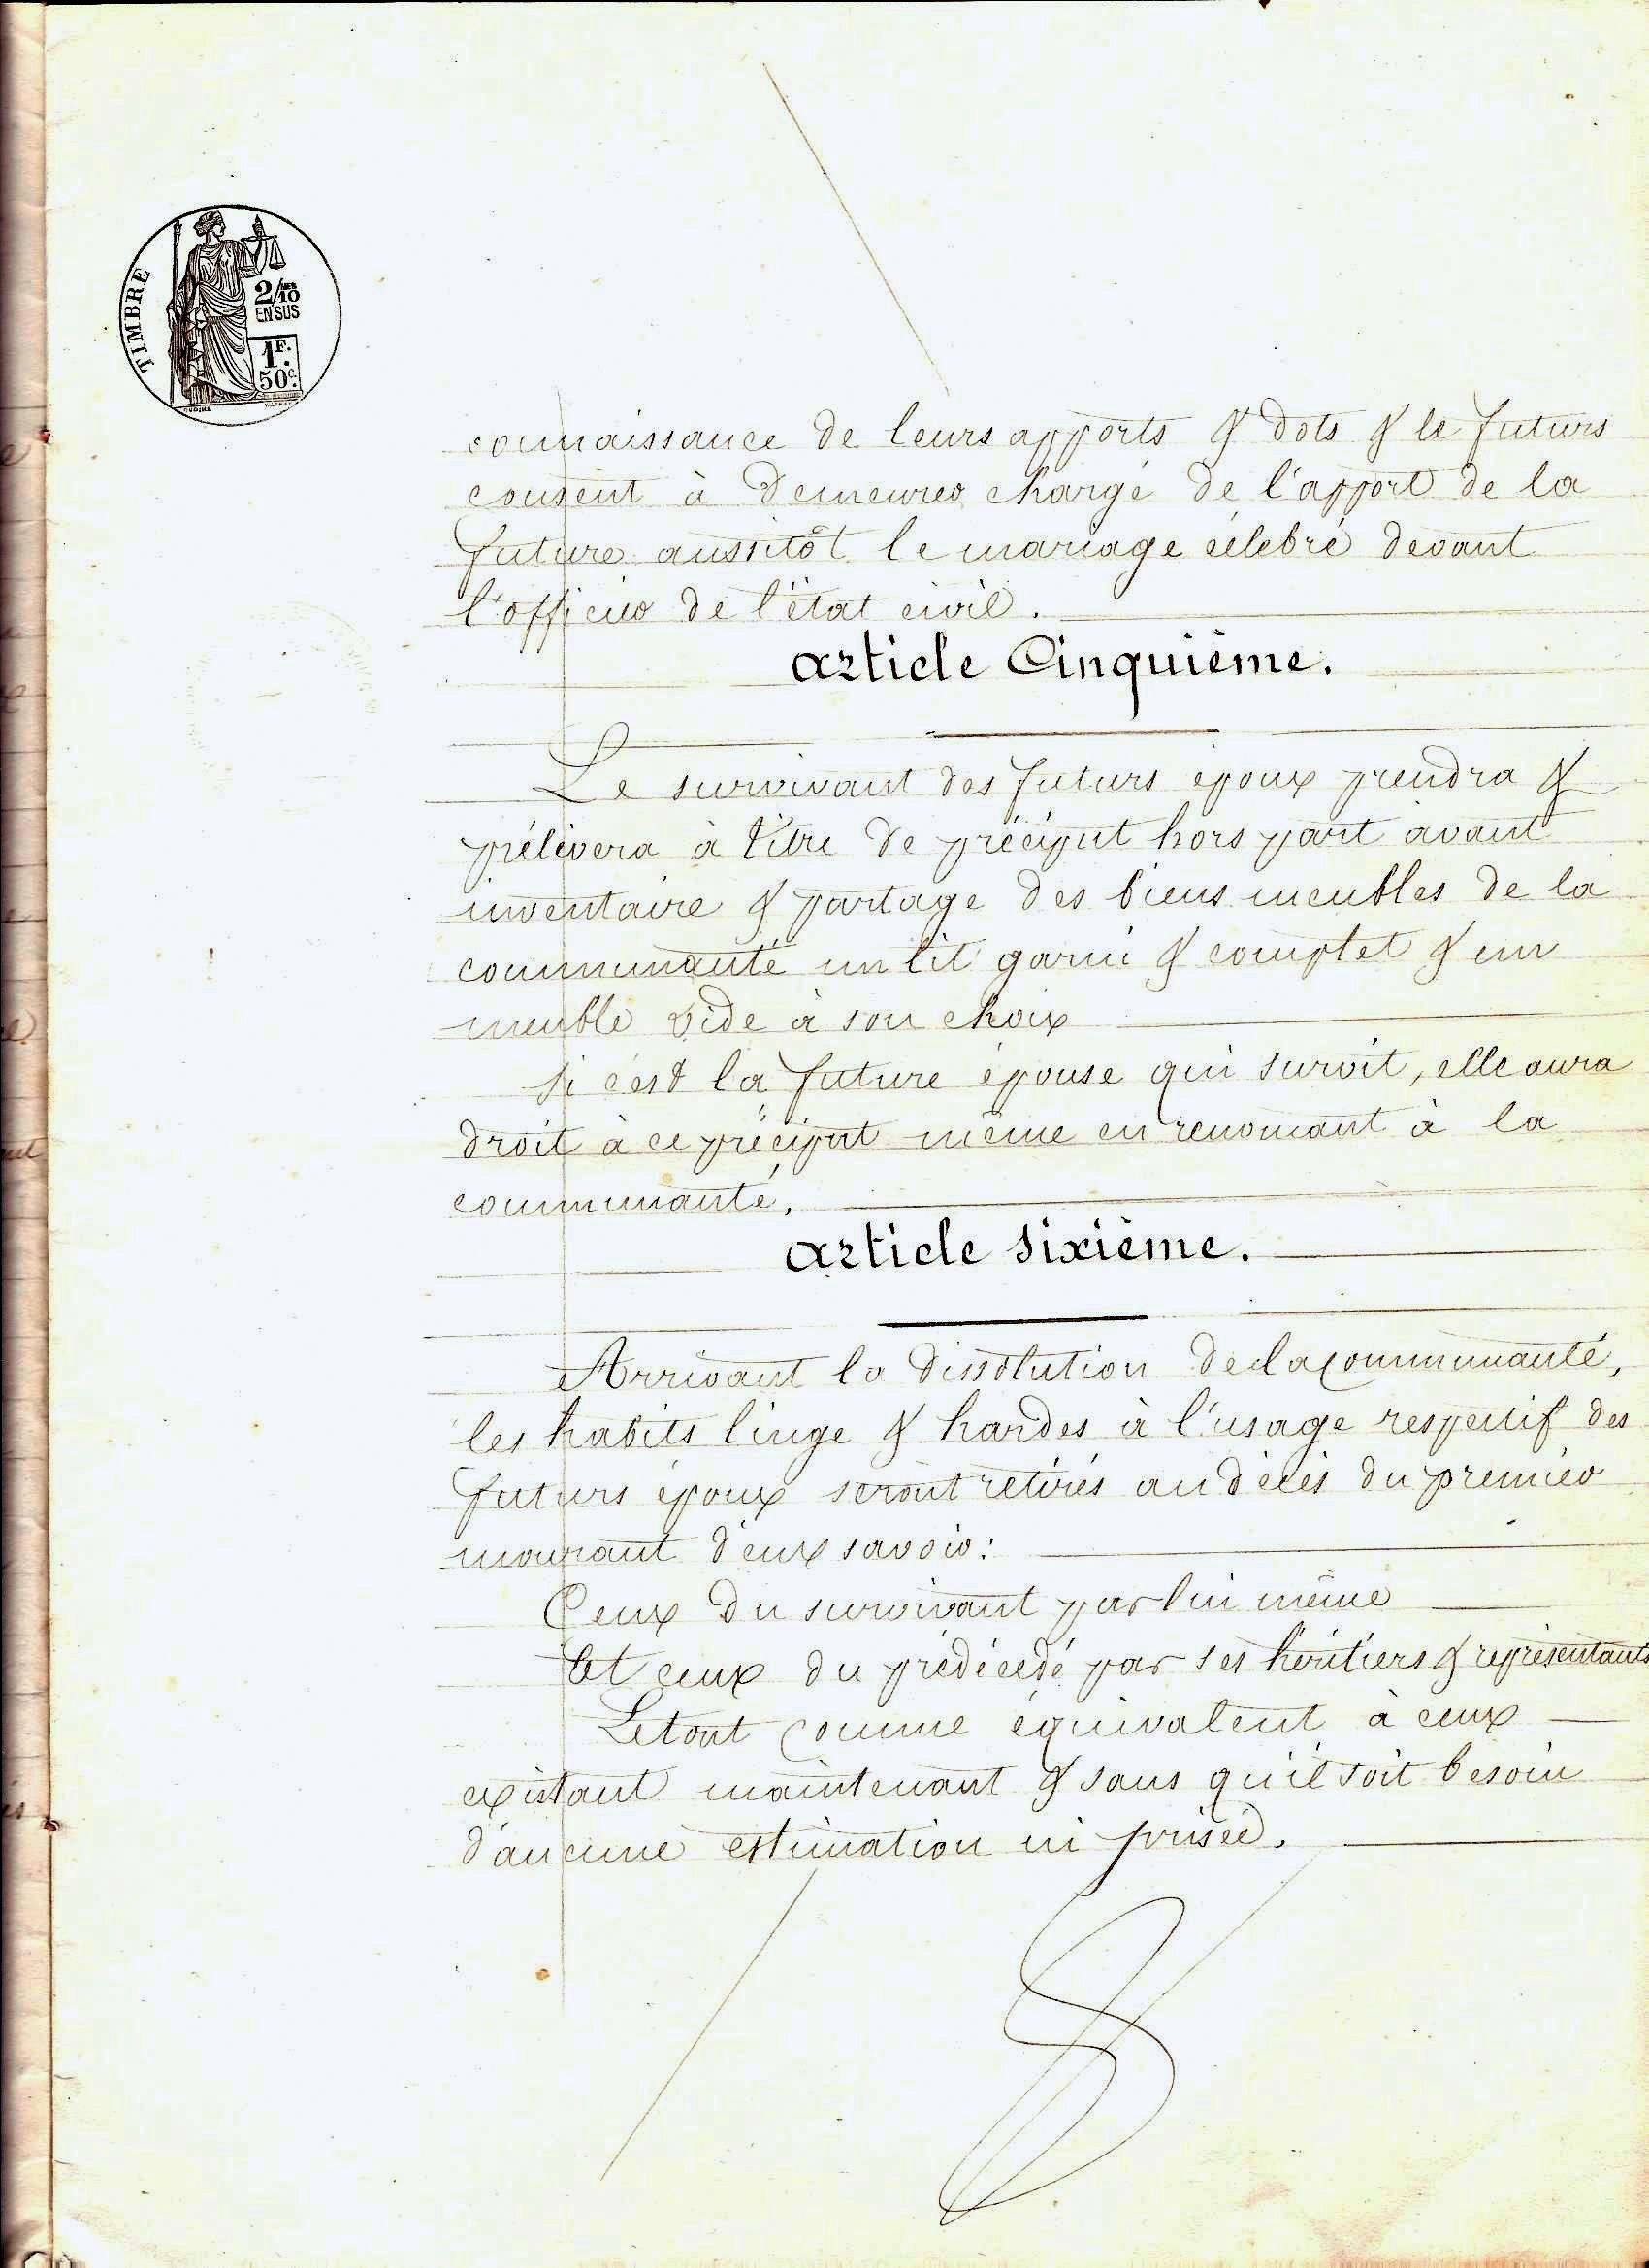 TIMBRE
2/10 MES
EN SUS
1F.
50c.
connaissance de leurs apports & dots & le futurs
consent à demeurer chargé de l'apport de la
future aussitôt le mariage célébré devant
l'officier de l'état civil.
article Cinquième.
Le survivant des futurs époux prendra &
prélèvera à titre de préciput hors part avant
inventaire & partage des biens meubles de la
communauté un lit garni & complet & un
meuble vide à son choix
Si c'est la future épouse qui survit, elle aura
droit à ce préciput même en renonçant à la
communauté.
article Sixième.
Arrivant la dissolution de la communauté,
les habits linge & hardes à l'usage respectif des
futurs époux seront retirés au décès du premier
mourant d'eux savoir:
Ceux du survivant par lui même
Et ceux du prédécédé par ses héritiers & représentants
Le tout comme équivalent à ceux
existant maintenant & sans qu'il soit besoin
d'aucune estimation ni prisée.